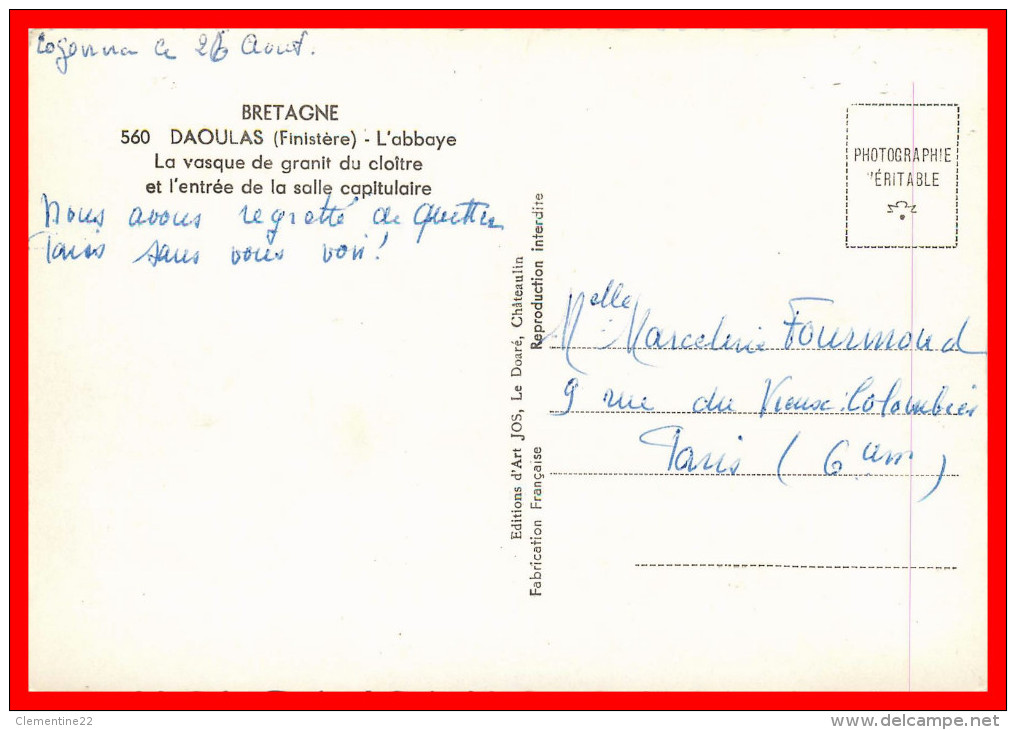 Logonna le 26 Aout.
BRETAGNE
560 DAOULAS (Finistère) - L'abbaye
La vasque de granit du cloître
et l'entrée de la salle capitulaire
Nous avons regretté de quitter
Paris sans vous voir!
Editions d'Art JOS, Le Doaré, Châteaulin
Fabrication Française
Reproduction interdite
PHOTOGRAPHIE
VÉRITABLE
Melle Marceline Fourmond
9 rue du Vieux-Colombier
Paris (6 em)
Clementine22
www.delcampe.net